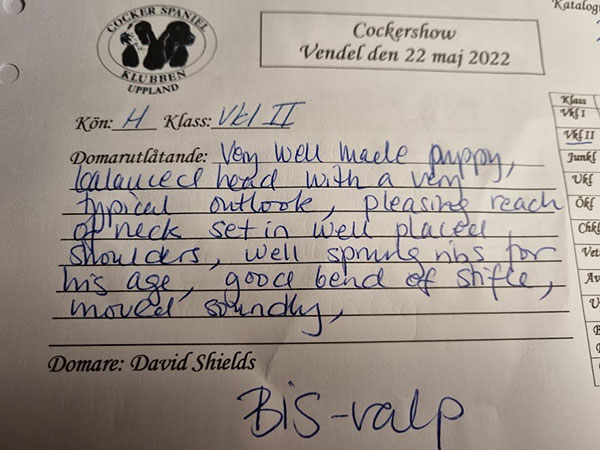 COCKER SPANIEL
KLUBBEN
UPPLAND
Cockershow
Vendel den 22 maj 2022
Katalog
Kön: H Klass: Vkl II
Domarutlåtande: Very well made puppy,
balanced head with a very
typical outlook, pleasing reach
of neck set in well placed
shoulders, well sprung ribs for
his age, good bend of stifle,
moved soundly,
Domare: David Shields
BIS-valp
Klass
Vkl I
Vkl II
Junkl
Ukl
Ökl
Chkl
Vet
Av
U
B